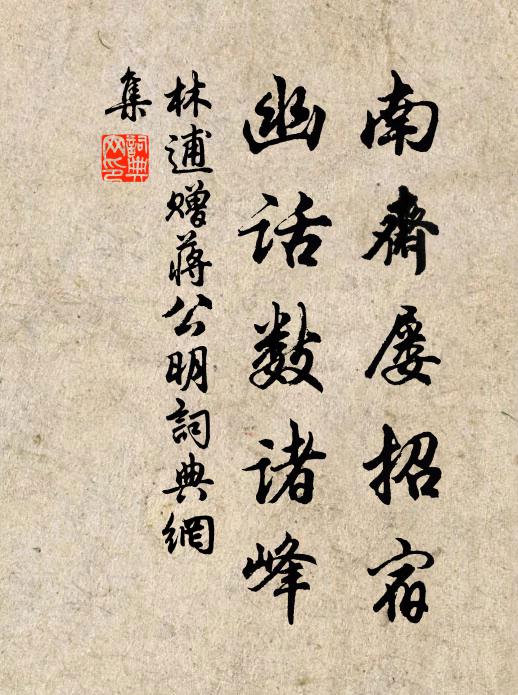 南齋屡招宿
幽话数诸峰
林逋赠蔣公明詞典網
集
詞典
网印